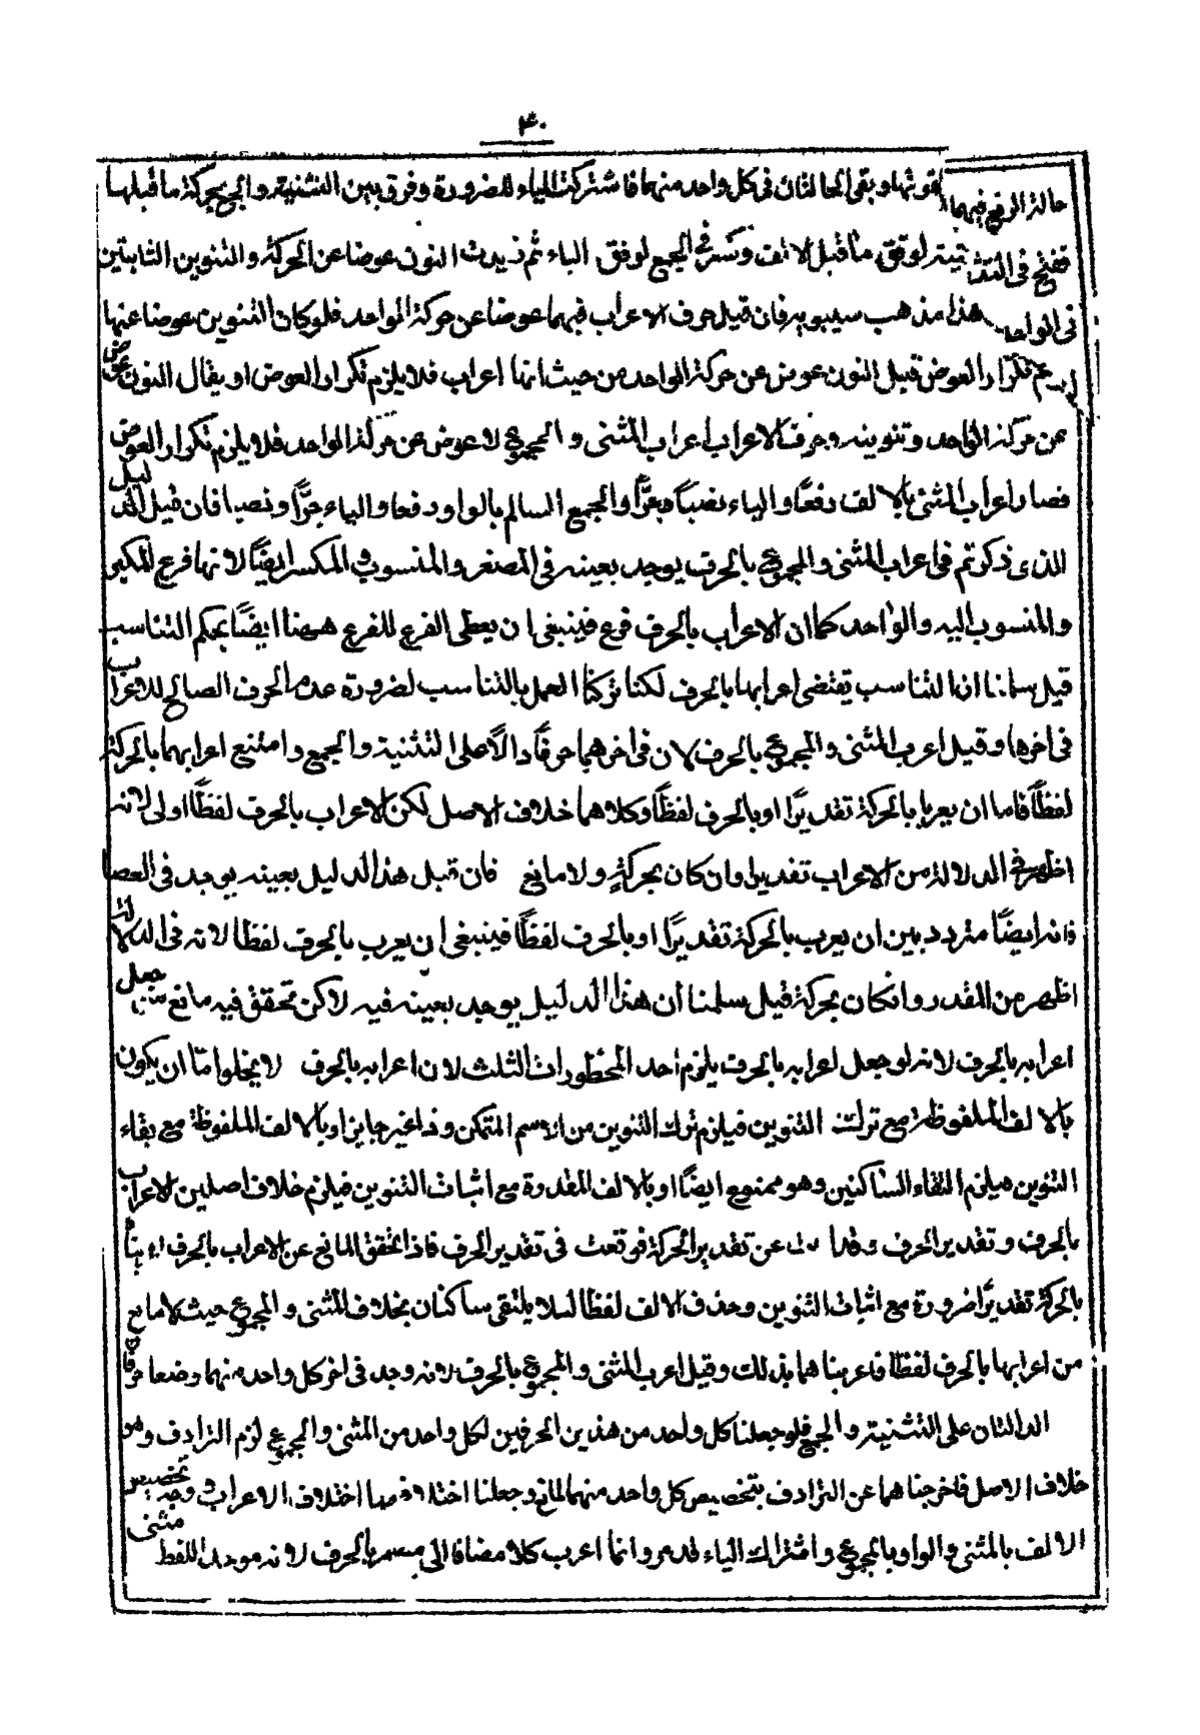 ۴۰
حالة الرفع فيهما لقوتها وبقى الحالتان فى كل واحد منهما فاشتركت الياء للضرورة وفرق بين التثنية والجمع بحركة ما قبلها
ففتح فى التثنية لوفق ما قبل الالف وكسر فى الجمع لوفق الياء ثم زيدت النون عوضا عن الحركة والتنوين الثابتين
فى الواحد هذا مذهب سيبويه فان قيل حرف الاعراب فيهما عوضا عن حركة الواحد فلو كان التنوين عوضا عنها
لزم تكرار العوض قيل النون عوض عن حركة الواحد من حيث انها اعراب فلا يلزم تكرار العوض او يقال النون عوض
عن حركة الواحد وتنوينه وحرف الاعراب اعراب المثنى و المجموع لا عوض عن حركة الواحد فلا يلزم تكرار العوض
فصار اعراب المثنى بالالف رفعًا والياء نصبًا وجرًّا والجمع السالم بالواو رفعا والياء جرًّا ونصبا فان قيل الدليل
الذى ذكرتم فى اعراب المثنى والمجموع بالحرف يوجد بعينه فى المصغر والمنسوب والمكسر ايضًا لانها فرع المكبر
والمنسوب اليه والواحد كما ان الاعراب بالحرف فرع فينبغى ان يعطى الفرع للفرع ههنا ايضًا بحكم التناسب
قيل سلمنا ان التناسب يقتضى اعرابها بالحرف لكنا تركنا العمل بالتناسب لضرورة عدم الحرف الصالح للاعراب
فى اخرها وقيل اعرب المثنى والمجموع بالحرف لان فى اخرهما حرفًا دالًا على التثنية والجمع وامتنع اعرابهما بالحركة
لفظًا فاما ان يعربا بالحركة تقديرًا او بالحرف لفظًا وكلاهما خلاف الاصل لكن الاعراب بالحرف لفظًا اولى لانه
اظهر فى الدلالة من الاعراب تقديرا وان كان بحركةٍ ولا مانع فان قيل هذا الدليل بعينه يوجد فى العصا
فانه ايضًا متردد بين ان يعرب بالحركة تقديرًا او بالحرف لفظًا فينبغى ان يعرب بالحرف لفظا لانه فى الدلالة
اظهر من المقدر وانكان بحركة قيل سلمنا ان هذا الدليل يوجد بعينه فيه لاكن تحقق فيه مانع من جعل
اعرابه بالحرف لانه لو جعل اعرابه بالحرف يلزم احد المحظورات الثلث لان اعرابه بالحرف لا يخلوا امّا ان يكون
بالالف الملفوظة مع ترك التنوين فيلزم ترك التنوين من الاسم المتمكن وذا غير جايز او بالالف الملفوظة مع بقاء
التنوين فيلزم التقاء الساكنين وهو ممنوع ايضًا او بالالف المقدرة مع اثبات التنوين فيلزم خلاف اصلين الاعراب
بالحرف وتقدير الحرف عن تقدير الحركة فوقعت فى تقدير الحرف فاذا تحقق المانع عن الاعراب بالحرف
بالحركة تقديرًا ضرورة مع اثبات التنوين وحذف الالف لفظا لئلا يلتقى ساكنان بخلاف المثنى والمجموع حيث لا مانع
من اعرابهما بالحرف لفظا فاعربناهما بذلك وقيل اعرب المثنى والمجموع بالحرف لانه وجد فى اخر كل واحد منهما وضعا حرفان
الدالتان على التثنية والجمع فلو جعلنا كل واحد من هذين الحرفين لكل واحد من المثنى والمجموع لزم الترادف وهو
خلاف الاصل فاخرجناهما عن الترادف بتخصيص كل واحد منهما لمانع وجعلنا اختلافهما اختلاف الاعراب وجه تخصيص
الالف بالمثنى والواو بالمجموع واشتراك الياء قد مر وانما اعرب كلا مضافا الى مضمر بالحرف لانه موحد اللفظ مثنى